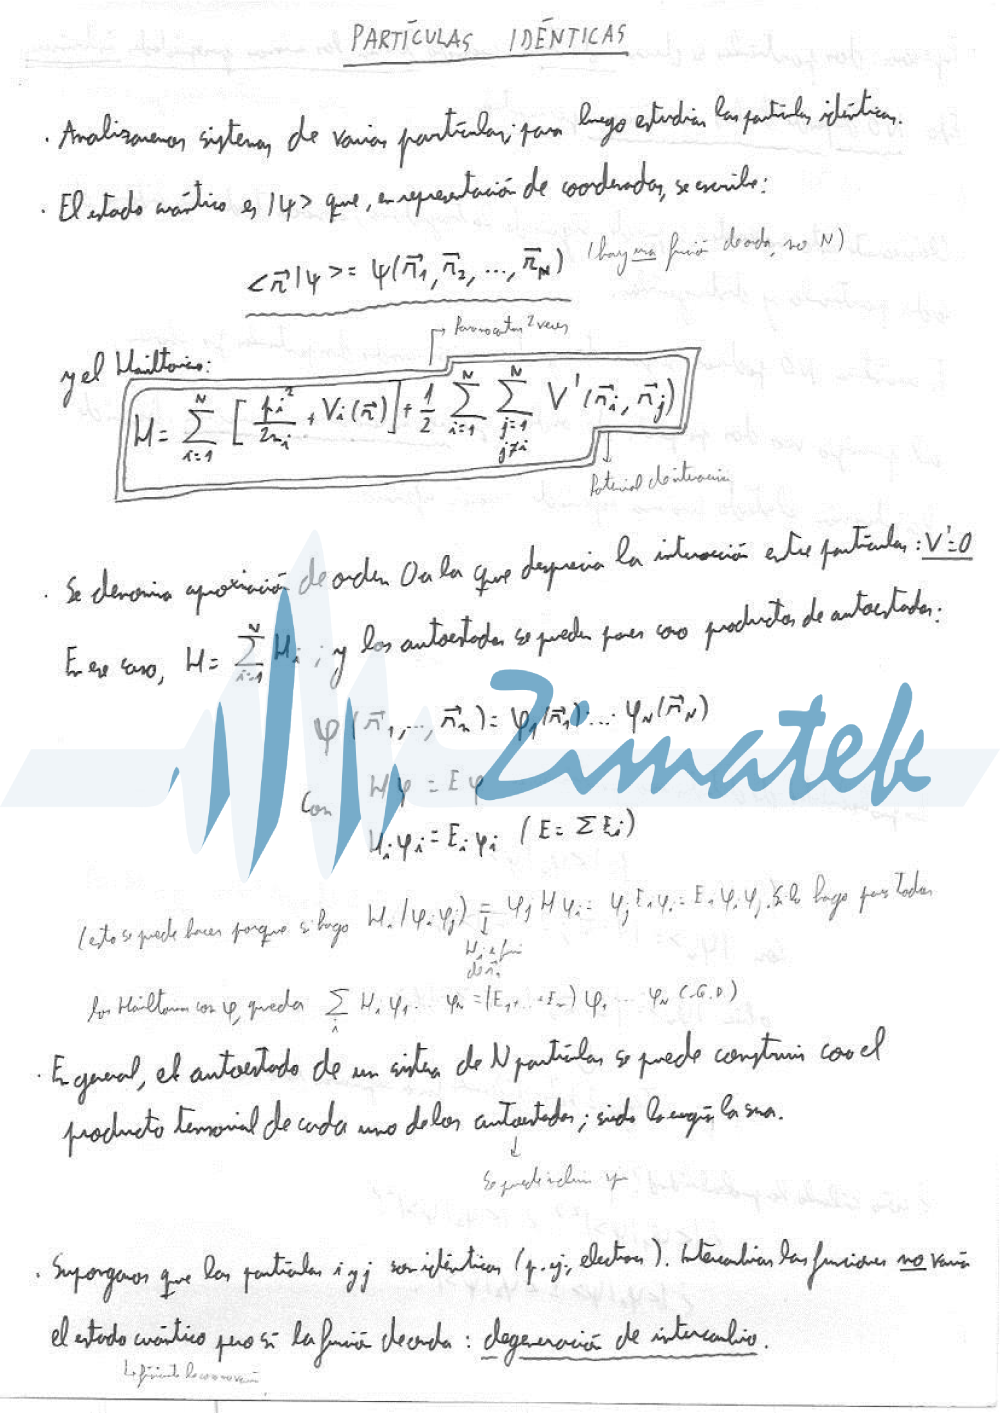 PARTÍCULAS IDÉNTICAS
· Analizaremos sistemas de varias partículas, para luego estudiar las partículas idénticas.
· El estado cuántico es |ψ> que, en representación de coordenadas, se escribe:
<r⃗|ψ> = ψ(r⃗₁, r⃗₂, ..., r⃗_N) (hay una función de onda, no N)
Para no contar 2 veces
y el Hamiltoniano:
H = Σ_{i=1}^{N} [ p_i²/2m_i + V_i(r⃗) ] + 1/2 Σ_{i=1}^{N} Σ_{j=1, j≠i}^{N} V'(r⃗_i, r⃗_j)
Potencial de interacción
· Se denomina aproximación de orden 0 a la que desprecia la interacción entre partículas: V'=0
En ese caso, H = Σ_{i=1}^{N} H_i ; y los autoestados se pueden poner como productos de autoestados:
φ(r⃗₁, ..., r⃗_n) = φ₁(r⃗₁)· ... · φ_N(r⃗_N)
Zimatek
con Hφ = Eφ
H_iφ_i = E_iφ_i (E = ΣE_i)
(esto se puede hacer porque si hago H_i(φ_iφ_j) = φ_j Hφ_i = φ_j E_iφ_i = E_iφ_iφ_j. Si lo hago para todos
los Hamiltonianos con φ, queda Σ_i H_i φ₁ ... φ_n = (E₁+ ... + E_n) φ₁ ... φ_N C.Q.D)
· En general, el autoestado de un sistema de N partículas se puede construir con el
producto tensorial de cada uno de los autoestados; siendo la energía la suma.
Se puede incluir spin
· Supongamos que las partículas i y j son idénticas (p. ej., electrones). Intercambiar las funciones no varía
el estado cuántico pero sí la función de onda: degeneración de intercambio.